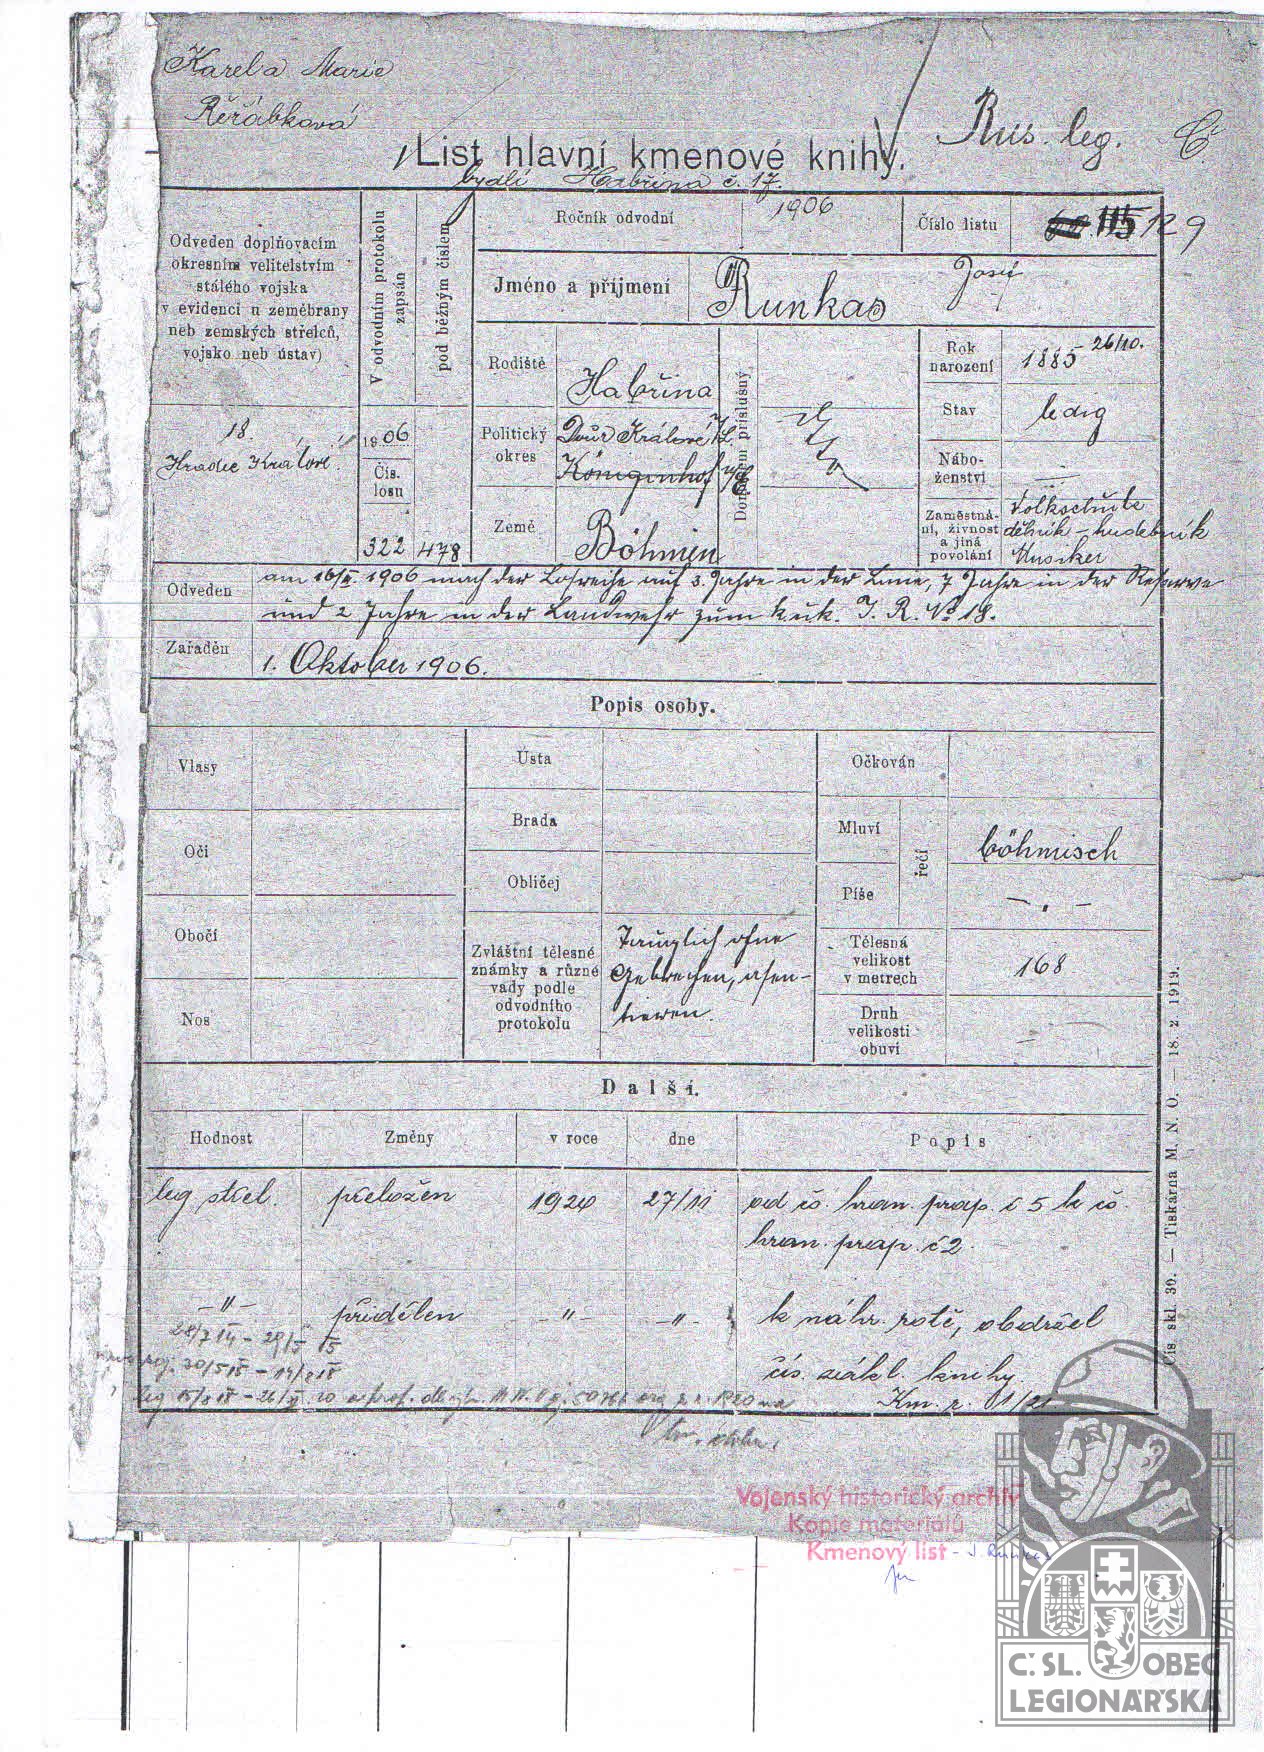 Karel a Marie
Řeřábková
Rus. leg.
List hlavní kmenové knihy.
bydlí Habřina č. 17.
Odveden doplňovacím
okresním velitelstvím
stálého vojska
(v evidenci u zeměbrany
neb zemských střelců,
vojsko neb ústav)
V odvodním protokolu
zapsán
pod běžným číslem
Ročník odvodní
1906
Číslo listu
115 129
Jméno a příjmení
Runkas Josef
Rodiště
Habřina
Domovem příslušný
Rok
narození
1885 26/10.
Stav
ledig
18.
Hradec Králové
1906
Čís.
losu
322
478
Politický
okres
Dvůr Králové n/L.
Königinhof
Nábo-
ženství
Země
Böhmen
Zaměstná-
ní, živnost
a jiná
povolání
Volksschule
dělník - hudebník
Musiker
Odveden
am 16/III. 1906 nach der Losreihe auf 3 Jahre in der Linie, 7 Jahre in der Reserve
und 2 Jahre in der Landwehr zum k.u.k. I. R. No 18.
Zařaděn
1. Oktober 1906.
Popis osoby.
Vlasy
Oči
Obočí
Nos
Ústa
Brada
Obličej
Zvláštní tělesné
známky a různé
vady podle
odvodního
protokolu
Tauglich ohne
Gebrechen, assen-
tieren.
Očkován
Mluví
Píše
řečí
böhmisch
- . -
Tělesná
velikost
v metrech
168
Druh
velikosti
obuvi
Další.
Hodnost
Změny
v roce
dne
Popis
leg. střel. přeložen 1920 27/11 od čs. hran. prap. č 5 k čs.
hran. prap. č 2.
-"- přidělen -"- -"- k náhr. rotě, obdržel
čís. zákl. knihy
Km. r. 11/21
Čís. skl. 30. — Tiskárna M. N. O. — 18. z. 1919.
Vojenský historický archiv
Kopie materiálů
Kmenový list - J. Runkas
Č. SL. OBEC
LEGIONÁŘSKÁ